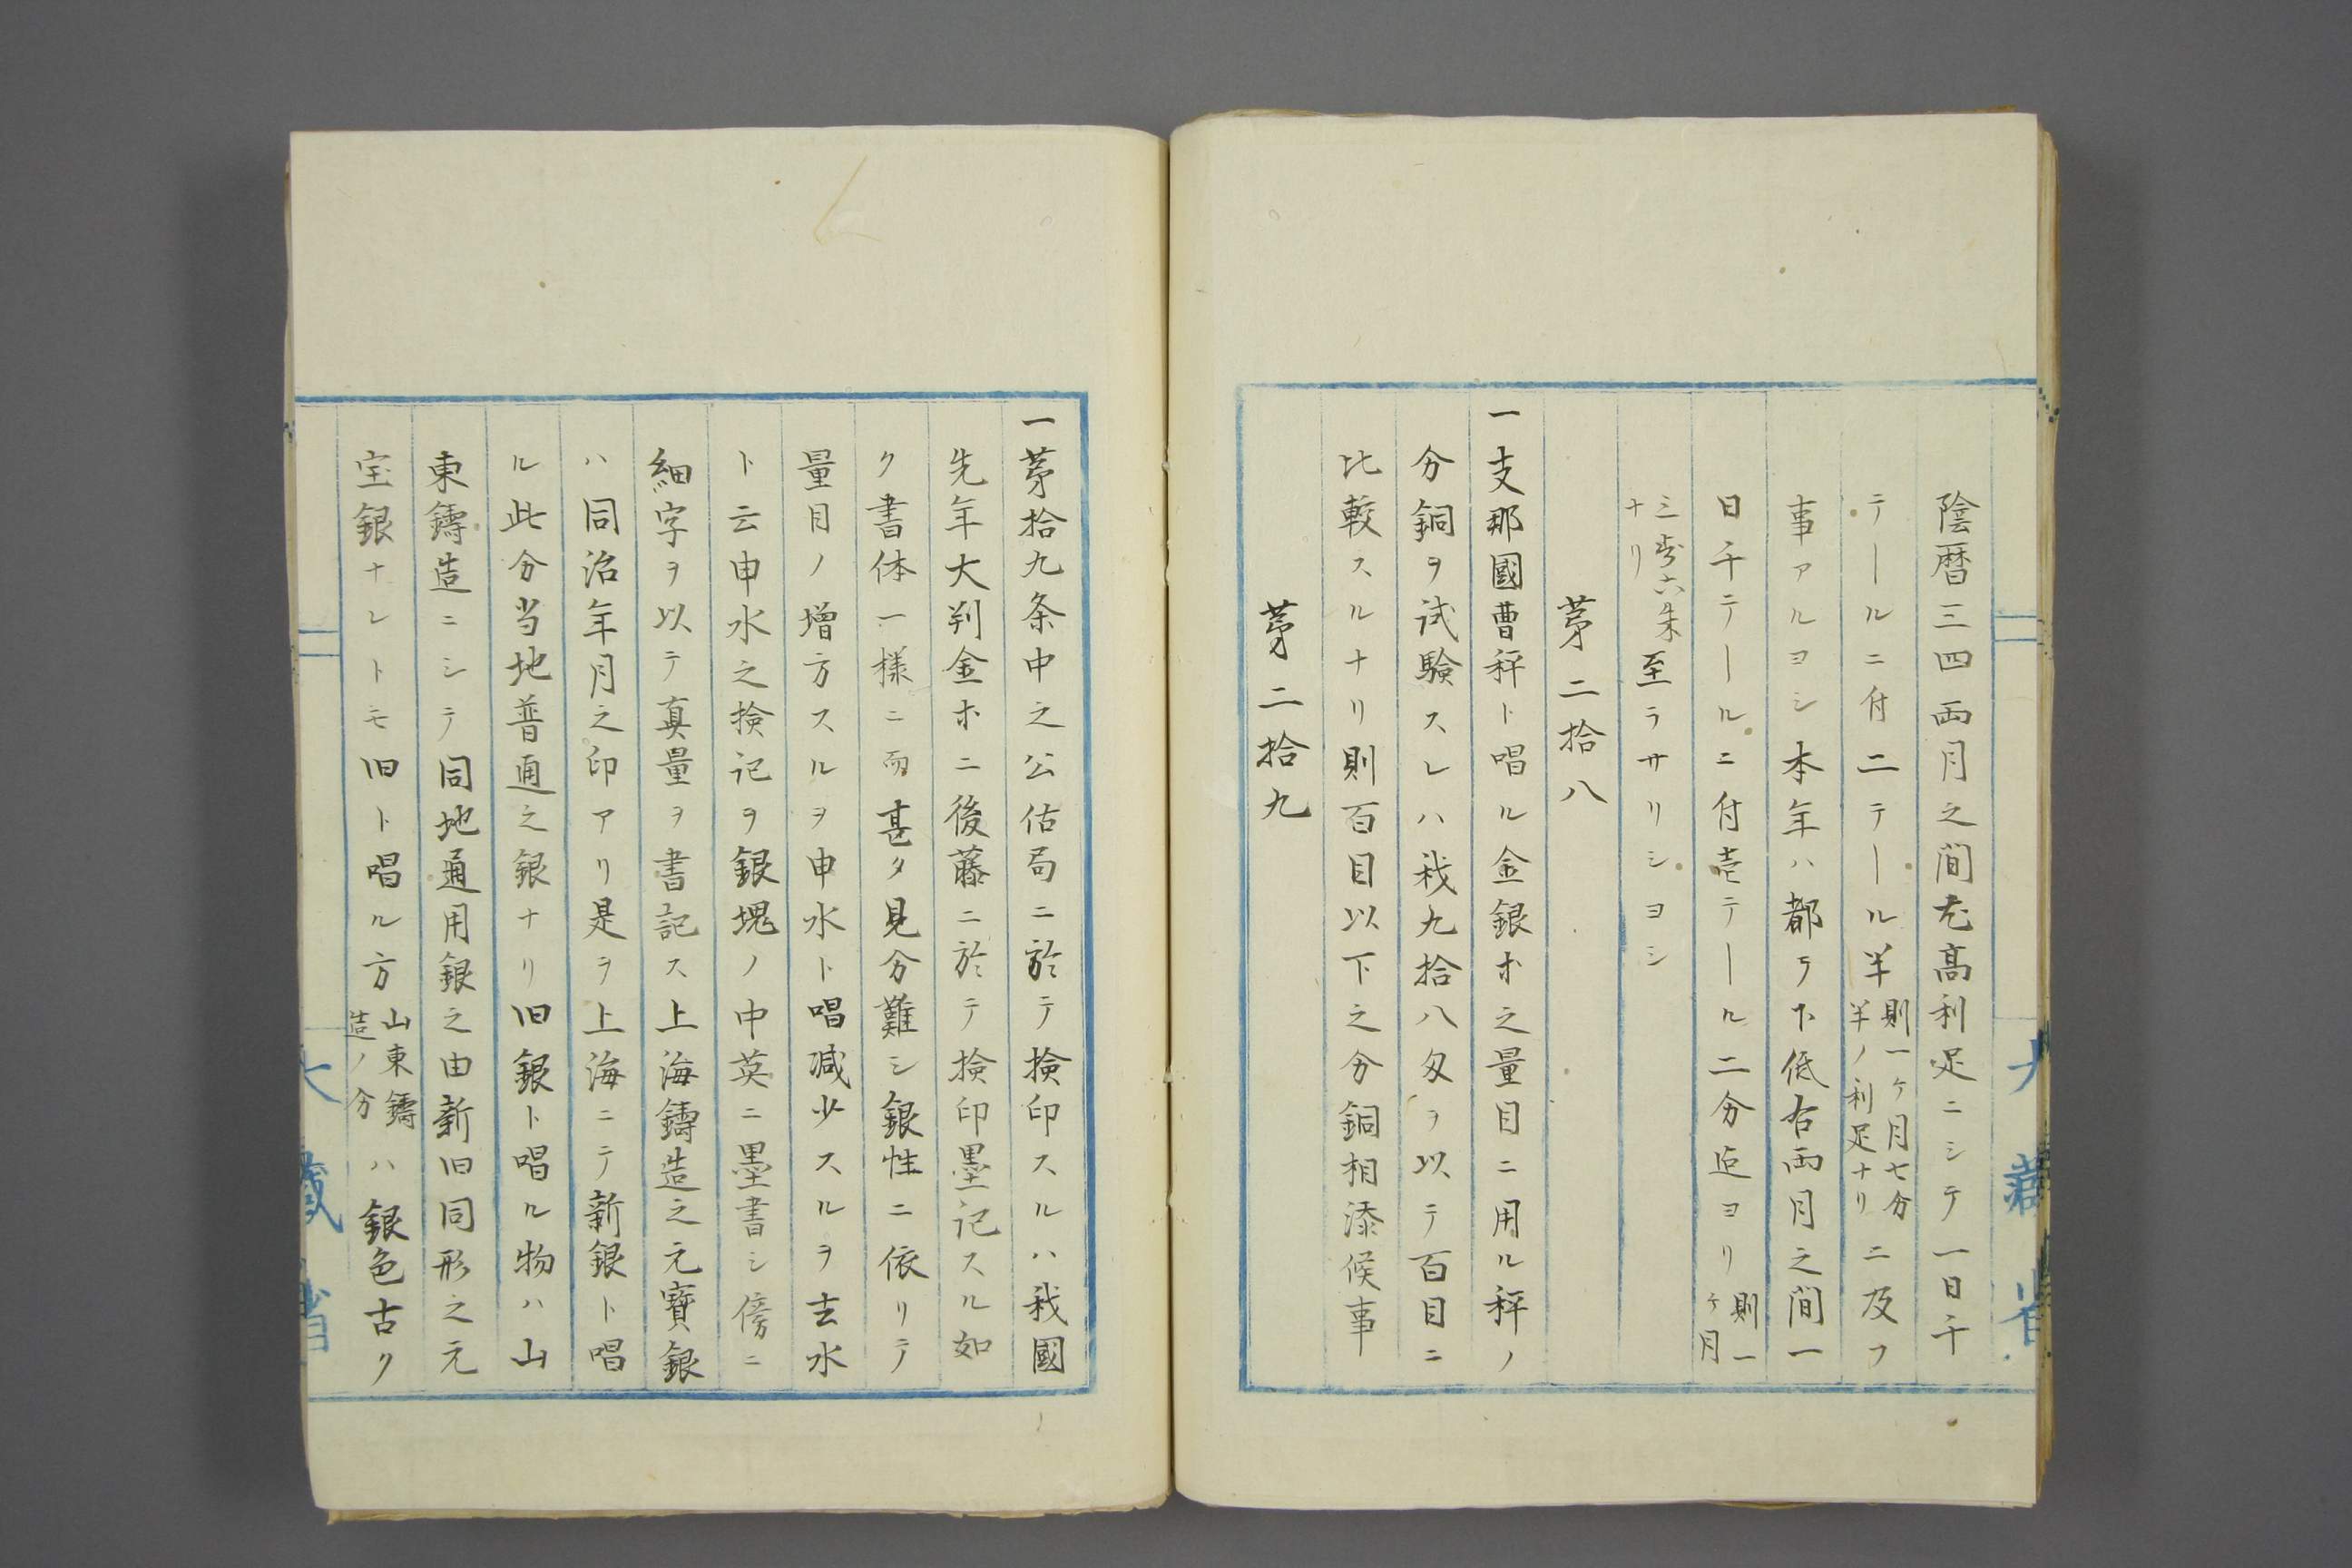 陰暦三四両月之間尤高利足ニシテ一日千
テールニ付二テール半則一ケ月七分半ノ利足ナリニ及フ
事アルヨシ本年ハ都テ下低右両月之間一
日千テールニ付壱テール二分迄ヨリ則一ケ月
三歩六朱ナリ至ラサリシヨシ
茅二拾八
一支那國曹秤ト唱ル金銀ホ之量目ニ用ル秤ノ
分銅ヲ試驗スレハ我九拾八匁ヲ以テ百目ニ
比較スルナリ則百目以下之分銅相添候事
茅二拾九
一茅拾九条中之公估局ニ於テ検印スルハ我國
先年大判金ホニ後藤ニ於テ検印墨記スル如
ク書体一様ニ而甚タ見分難シ銀性ニ依リテ
量目ノ増方スルヲ申水ト唱減少スルヲ去水
ト云申水之検記ヲ銀塊ノ中英ニ墨書シ傍ニ
細字ヲ以テ真量ヲ書記ス上海鑄造之元寶銀
ハ同治年月之印アリ是ヲ上海ニテ新銀ト唱
ル此分当地普通之銀ナリ旧銀ト唱ル物ハ山
東鑄造ニシテ同地通用銀之由新旧同形之元
宝銀ナレトモ旧ト唱ル方山東鑄造ノ分ハ銀色古ク
大藏省
大藏省